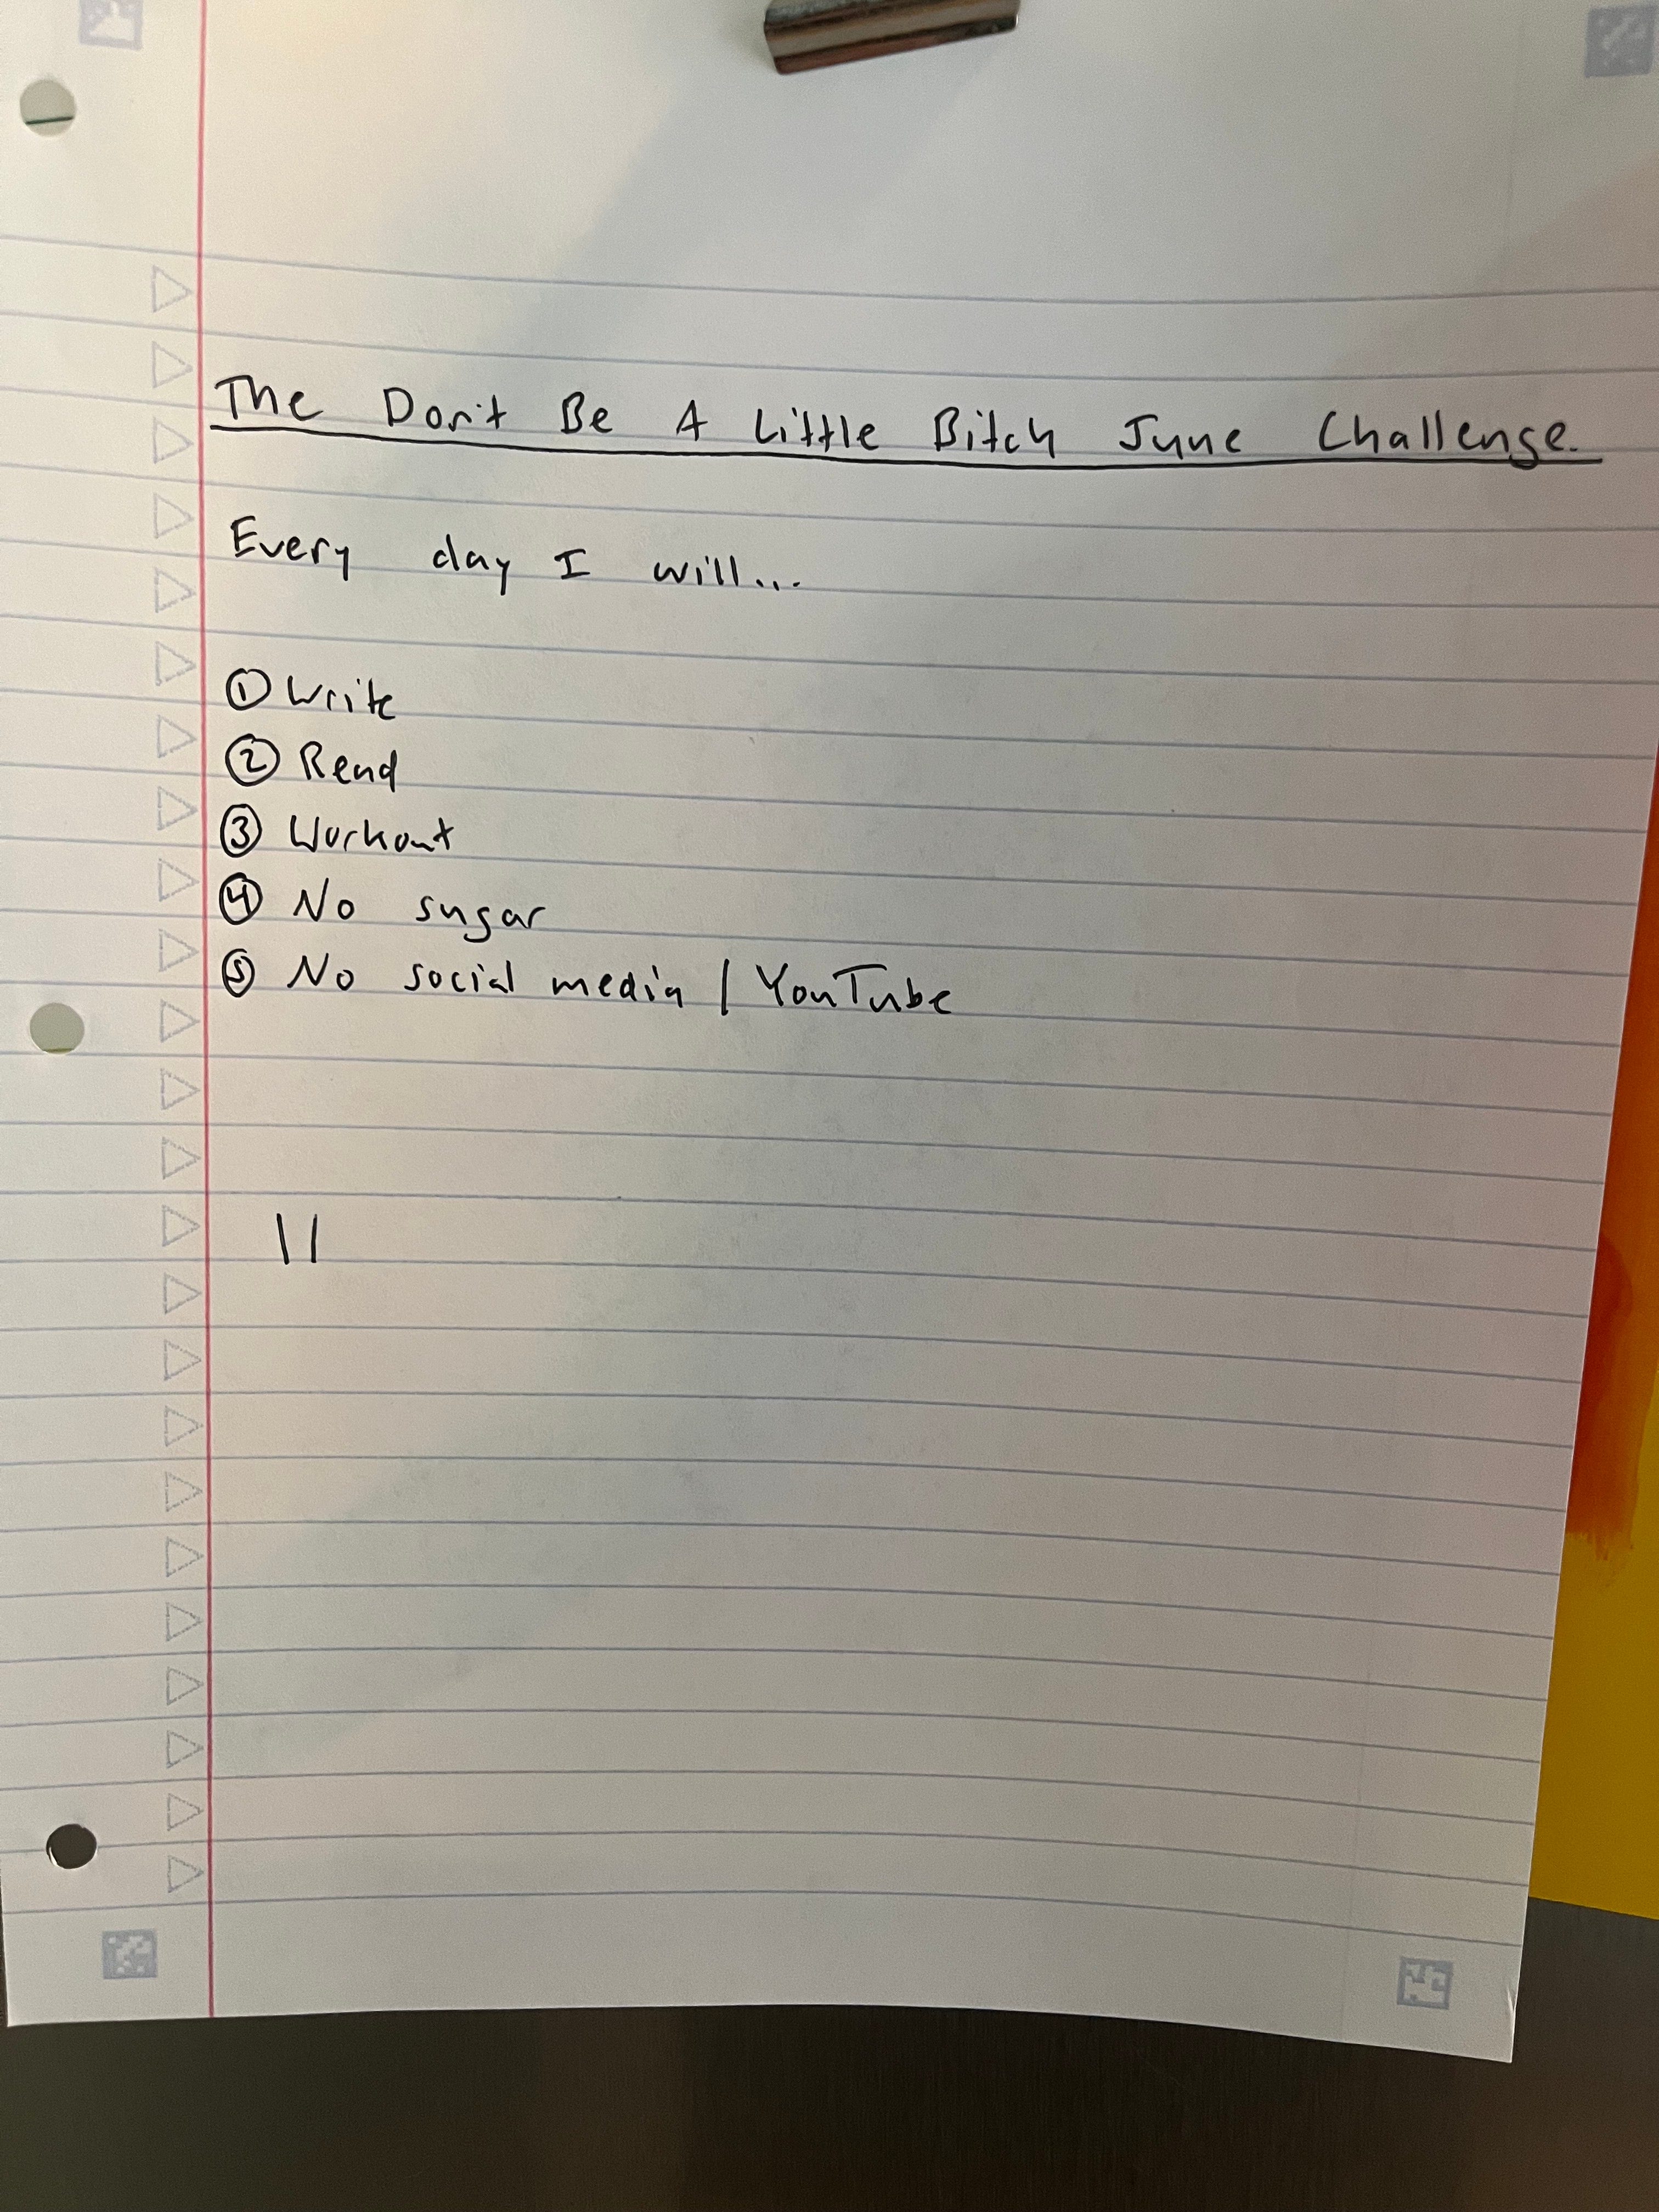 The Don't Be A Little Bitch June Challenge.
Every day I will...
① Write
② Read
③ Workout
④ No sugar
⑤ No social media / YouTube
||